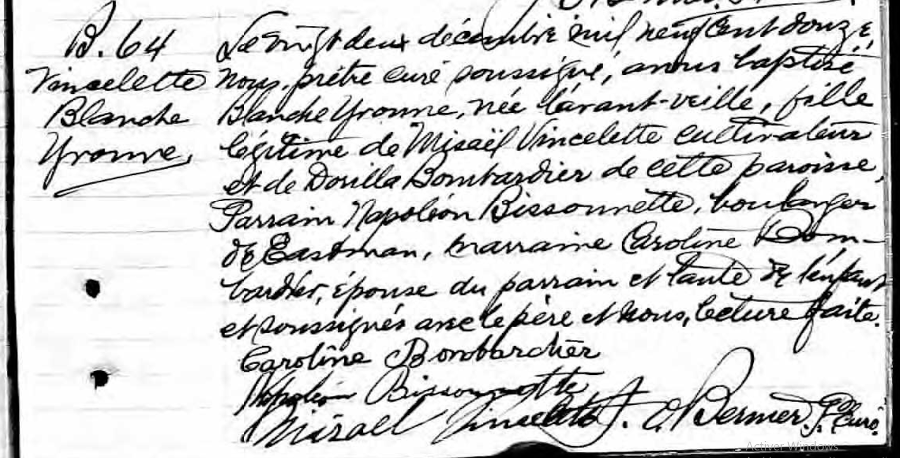 B. 64
Vincelette
Blanche
Yvonne,
Le vingt deux décembre mil neuf cent douze,
nous, prêtre curé soussigné, avons baptisé
Blanche Yvonne, née l'avant-veille, fille
légitime de Misaël Vincelette cultivateur
et de Dorilla Bombardier de cette paroisse,
Parrain Napoléon Bissonnette, boulanger
de Eastman, marraine Caroline Bom-
bardier, épouse du parrain et tante de l'enfant
et soussignés avec le père et nous, lecture faite.
Caroline Bombardier
Napoléon Bissonnette
Misael Vincelette J. O. Bernier, Ptre Curé.
Activer Windows